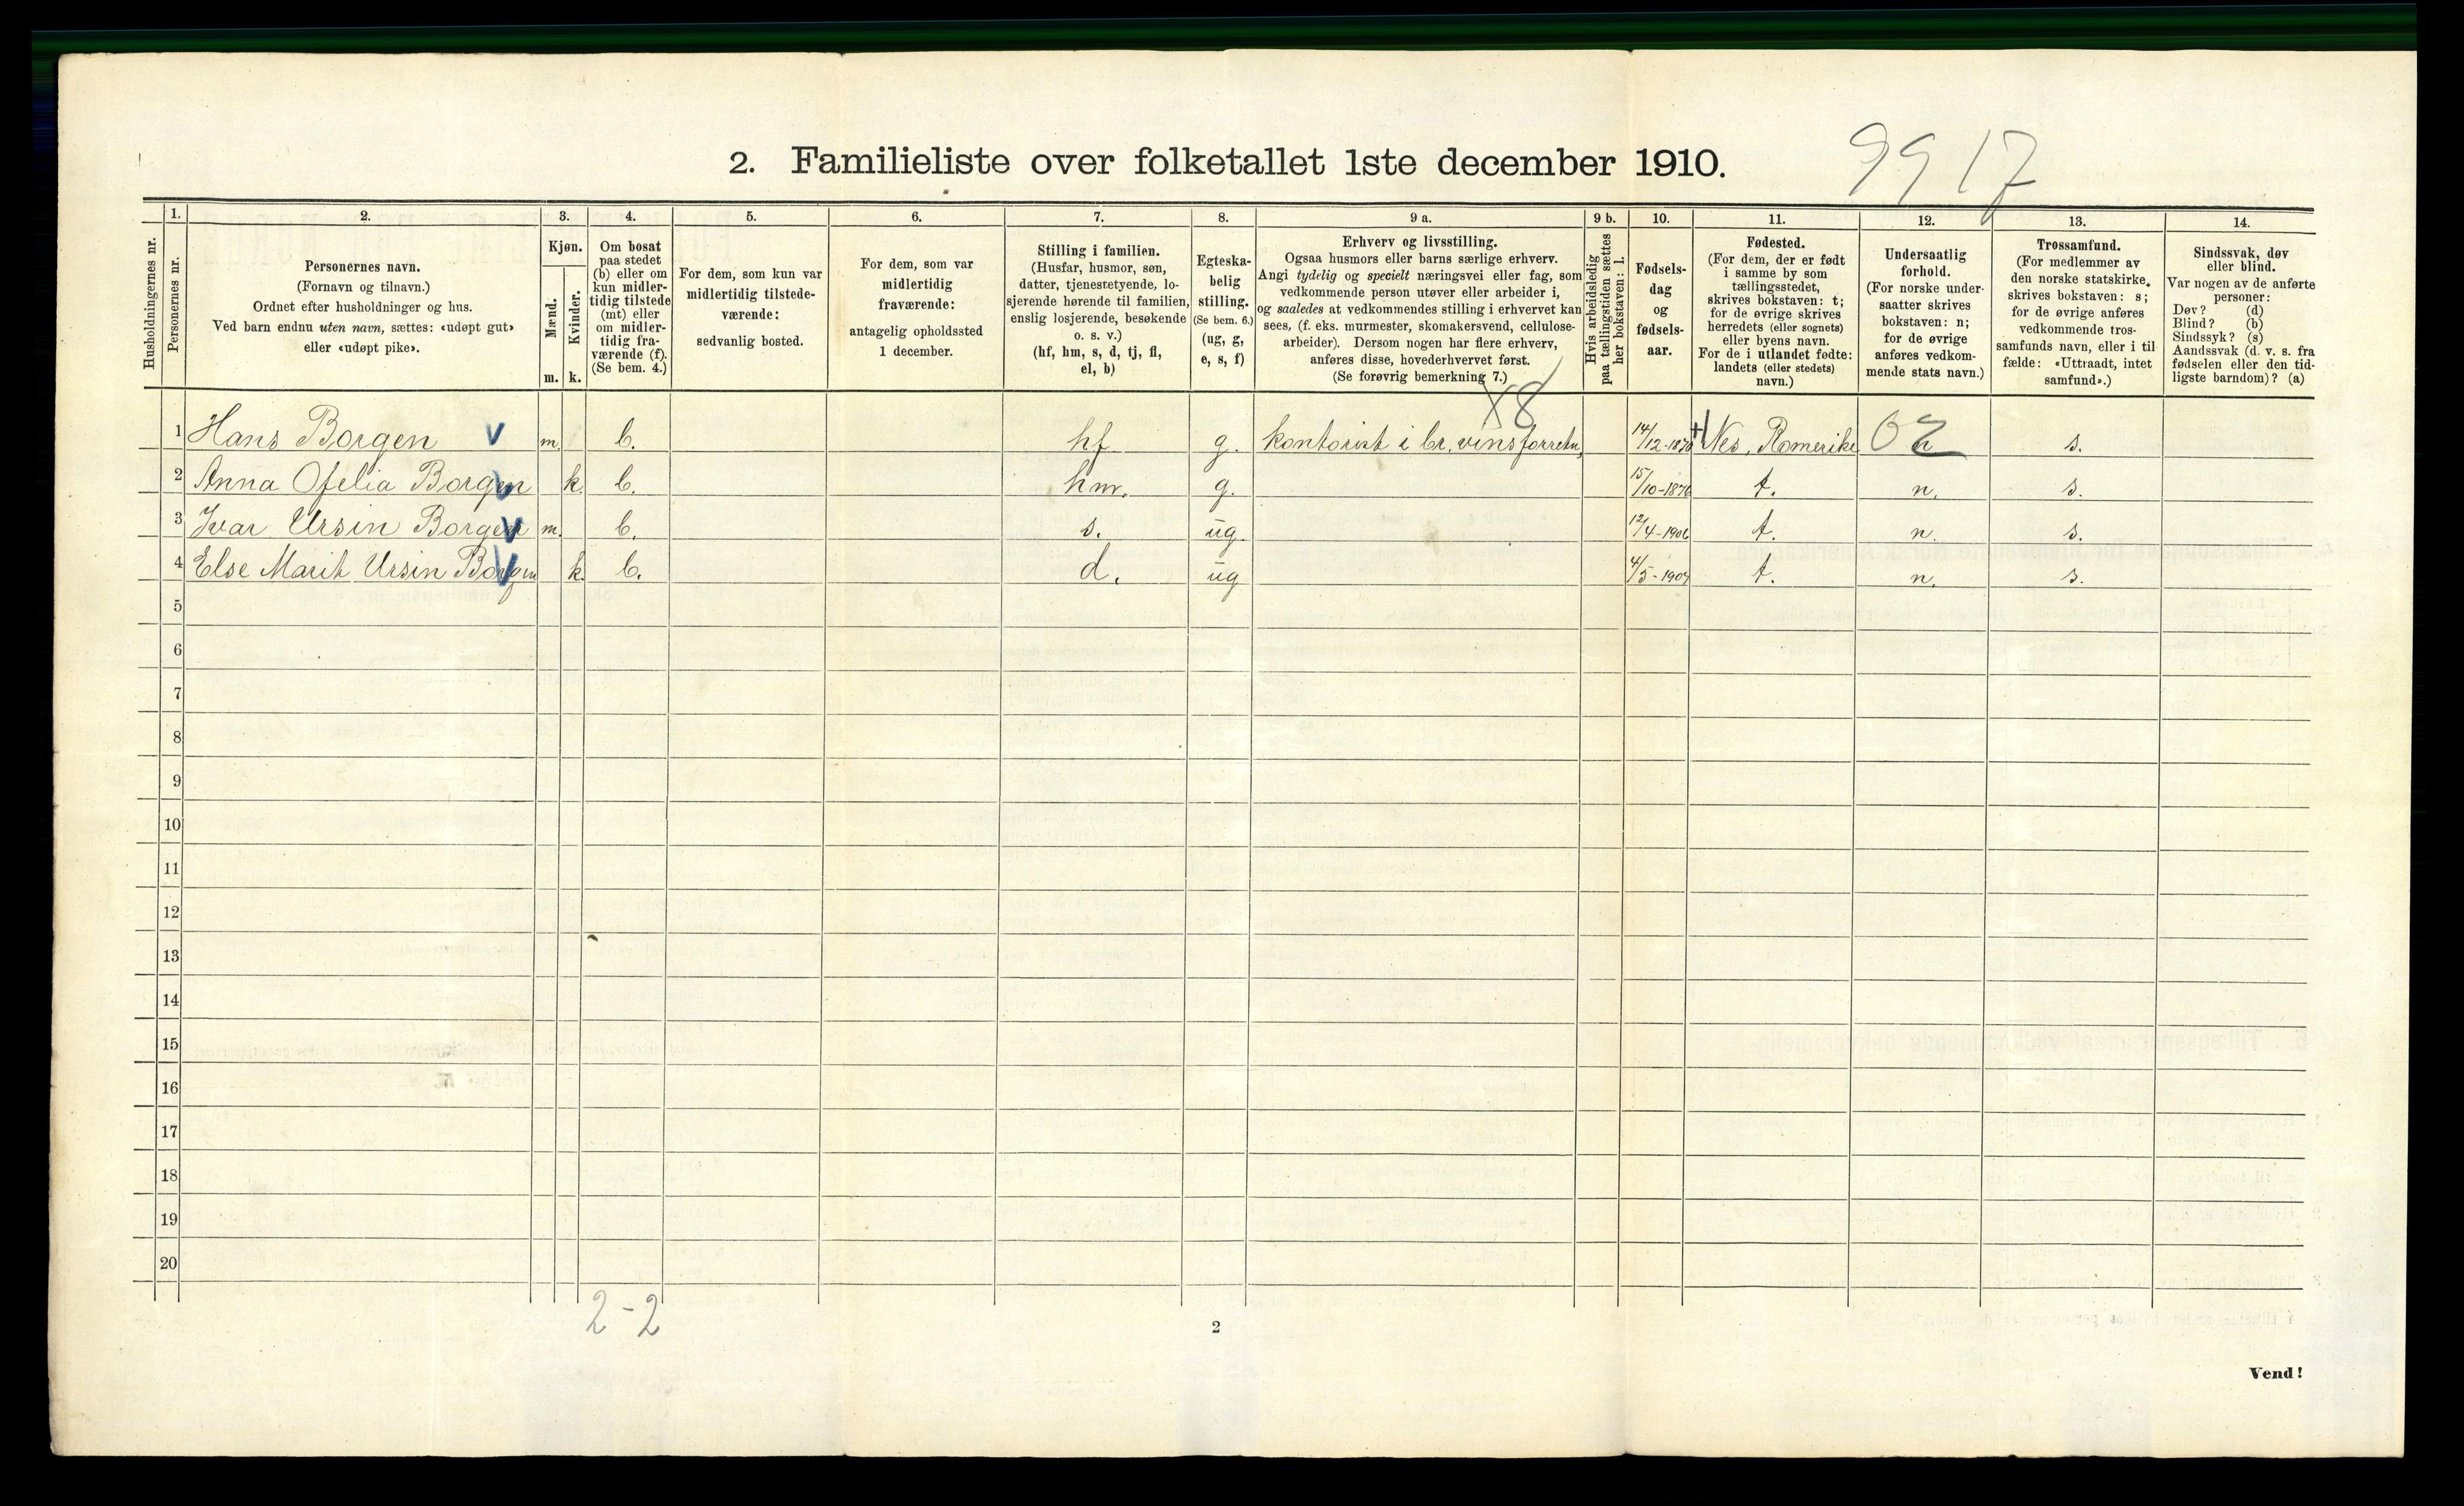 2. Familieliste over folketallet 1ste december 1910.
9917
Husholdningernes nr.
1.
Personernes nr.
2.
Personernes navn.
(Fornavn og tilnavn.)
Ordnet efter husholdninger og hus.
Ved barn endnu uten navn, sættes: «udøpt gut»
eller «udøpt pike».
3.
Kjøn.
Mænd.
Kvinder.
m. k.
4.
Om bosat
paa stedet
(b) eller om
kun midler-
tidig tilstede
(mt) eller
om midler-
tidig fra-
værende (f).
(Se bem. 4.)
5.
For dem, som kun var
midlertidig tilstede-
værende:
sedvanlig bosted.
6.
For dem, som var
midlertidig
fraværende:
antagelig opholdssted
1 december.
7.
Stilling i familien.
(Husfar, husmor, søn,
datter, tjenestetyende, lo-
sjerende hørende til familien,
enslig losjerende, besøkende
o. s. v.)
(hf, hm, s, d, tj, fl,
el, b)
8.
Egteska-
belig
stilling.
(Se bem. 6.)
(ug, g,
e, s, f)
9 a.
Erhverv og livsstilling.
Ogsaa husmors eller barns særlige erhverv.
Angi tydelig og specielt næringsvei eller fag, som
vedkommende person utøver eller arbeider i,
og saaledes at vedkommendes stilling i erhvervet kan
sees, (f. eks. murmester, skomakersvend, cellulose-
arbeider). Dersom nogen har flere erhverv,
anføres disse, hovederhvervet først.
(Se forøvrig bemerkning 7.)
9 b.
Hvis arbeidsledig
paa tællingstiden sættes
her bokstaven: l.
10.
Fødsels-
dag
og
fødsels-
aar.
11.
Fødested.
(For dem, der er født
i samme by som
tællingsstedet,
skrives bokstaven: t;
for de øvrige skrives
herredets (eller sognets)
eller byens navn.
For de i utlandet fødte:
landets (eller stedets)
navn.)
12.
Undersaatlig
forhold.
(For norske under-
saatter skrives
bokstaven: n;
for de øvrige
anføres vedkom-
mende stats navn.)
13.
Trossamfund.
(For medlemmer av
den norske statskirke,
skrives bokstaven: s;
for de øvrige anføres
vedkommende tros-
samfunds navn, eller i til-
fælde: «Uttraadt, intet
samfund».)
14.
Sindssvak, døv
eller blind.
Var nogen av de anførte
personer:
Døv? (d)
Blind? (b)
Sindssyk? (s)
Aandssvak (d. v. s. fra
fødselen eller den tid-
ligste barndom)? (a)
X8
1 Hans Borgen V m. b. hf g. kontorist i br.vinsforretn. Nes, Romerike n s.
2 Anna Ofelia Borgen V k. b. hm. g. t. n. s.
3 Ivar Ursin Borgen V m. b. s. ug. 12/4-1906 t. n. s.
4 Else Marit Ursin Borgen V k. b. d. ug t. n. s.
5
6
7
8
9
10
11
12
13
14
15
16
17
18
19
20
2-2
2
Vend!